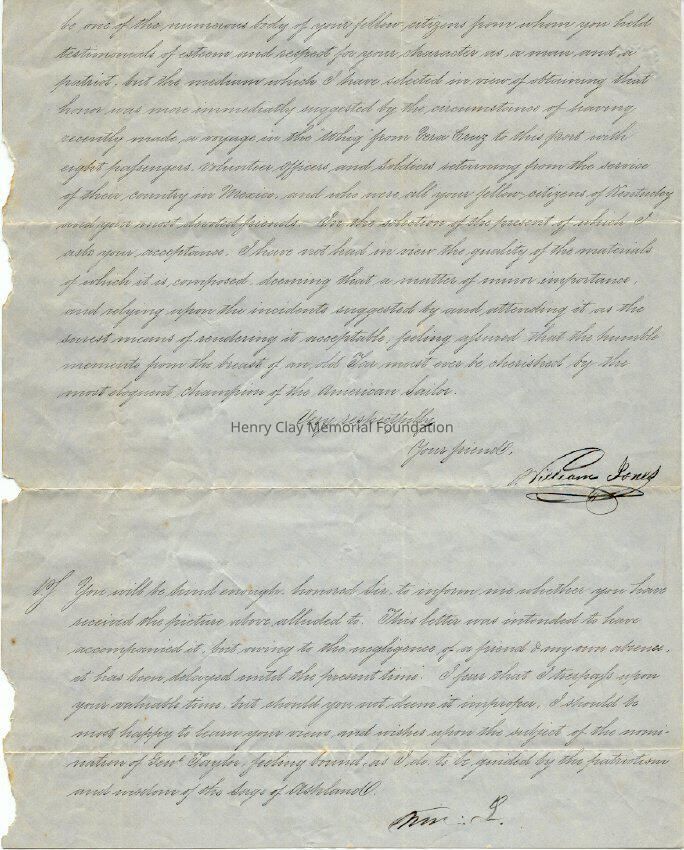 be one of the numerous body of your fellow citizens from whom you hold
testimonials of esteem and respect for your character as a man and a
patriot, but the medium which I have selected in view of obtaining that
honor was more immediately suggested by the circumstance of having
recently made a voyage in the Whig from Vera Cruz to this port with
eight passengers, volunteer officers and soldiers returning from the service
of their country in Mexico, and who were all your fellow-citizens of Kentucky
and your most devoted friends. In the selection of the present of which I
ask your acceptance, I have not had in view the quality of the materials
of which it is composed, deeming that a matter of minor importance,
and relying upon the incidents suggested by and attending it as the
surest means of rendering it acceptable, feeling assured that the humble
memento from the breast of an old Tar must ever be cherished by the
most eloquent champion of the American Sailor.
Very respectfully
Henry Clay Memorial Foundation
Your friend,
William Jones
You will be kind enough, honored Sir, to inform me whether you have
received the picture above alluded to. This letter was intended to have
accompanied it, but owing to the negligence of a friend & my own absence,
it has been delayed until the present time. I fear that I trespass upon
your valuable time, but should you not deem it improper, I should be
most happy to learn your views and wishes upon the subject of the nomi-
nation of Genl Taylor, feeling bound, as I do, to be guided by the patriotism
and wisdom of the Sage of Ashland.
Wm. J.